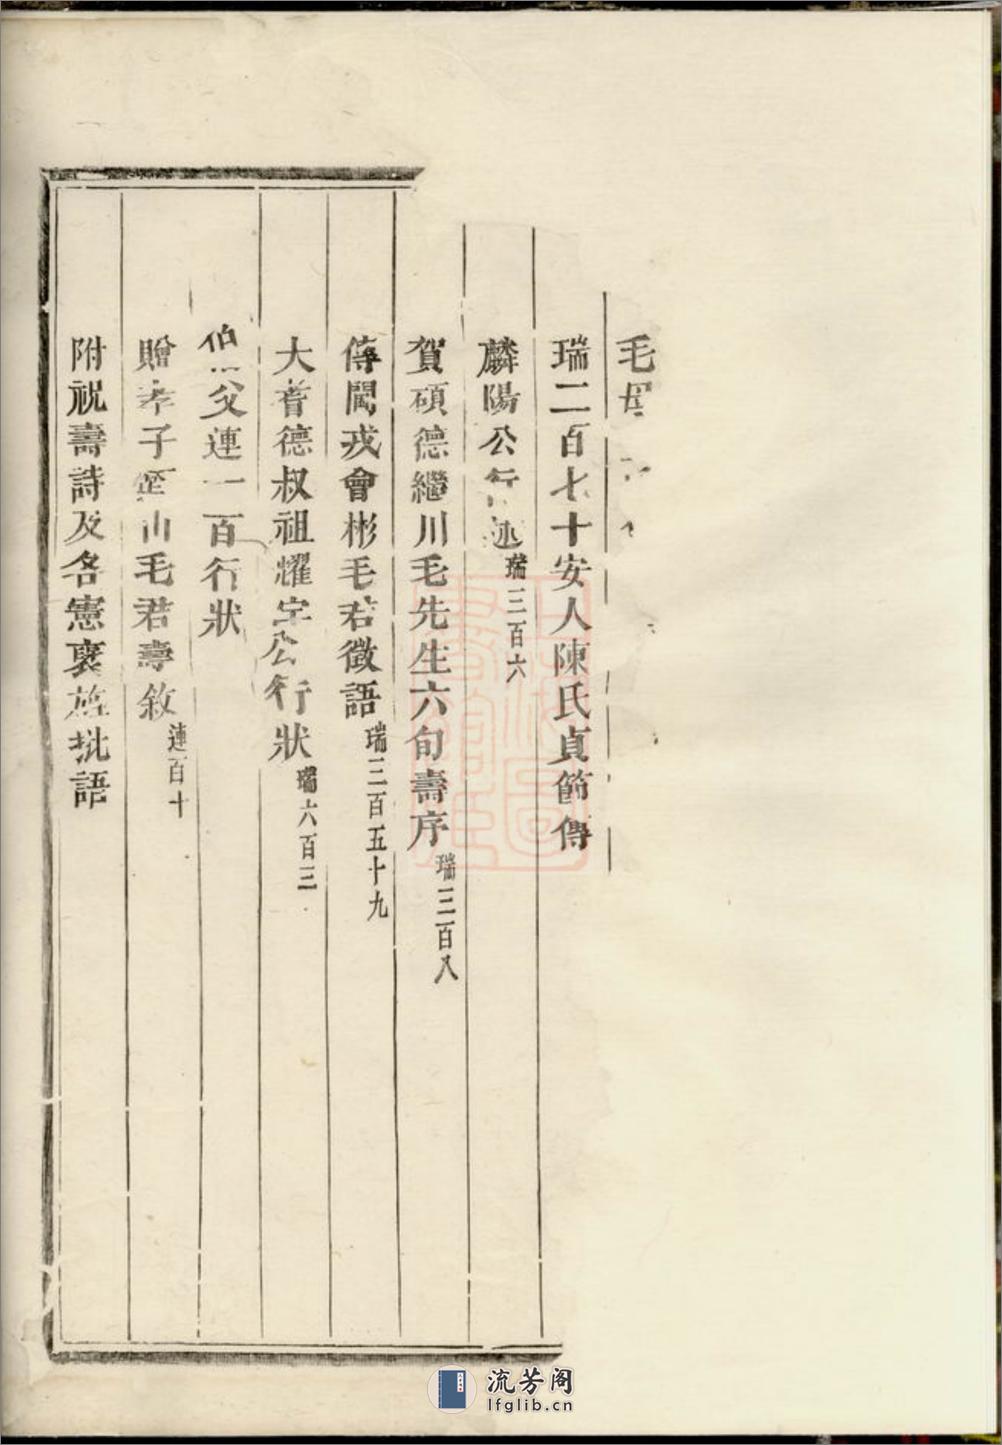 毛母
瑞二百七十安人陳氏貞節傳
麟陽公行述瑞三百六
賀碩德繼川毛先生六旬壽序瑞三百八
傳聞戎會彬毛君徵語瑞三百五十九
大耆德叔祖燿宇公行狀瑞六百三
伯父連一百行狀
贈孝子山毛君壽敘連百十
附祝壽詩及各憲褒旌批語
流芳阁
lfglib.cn